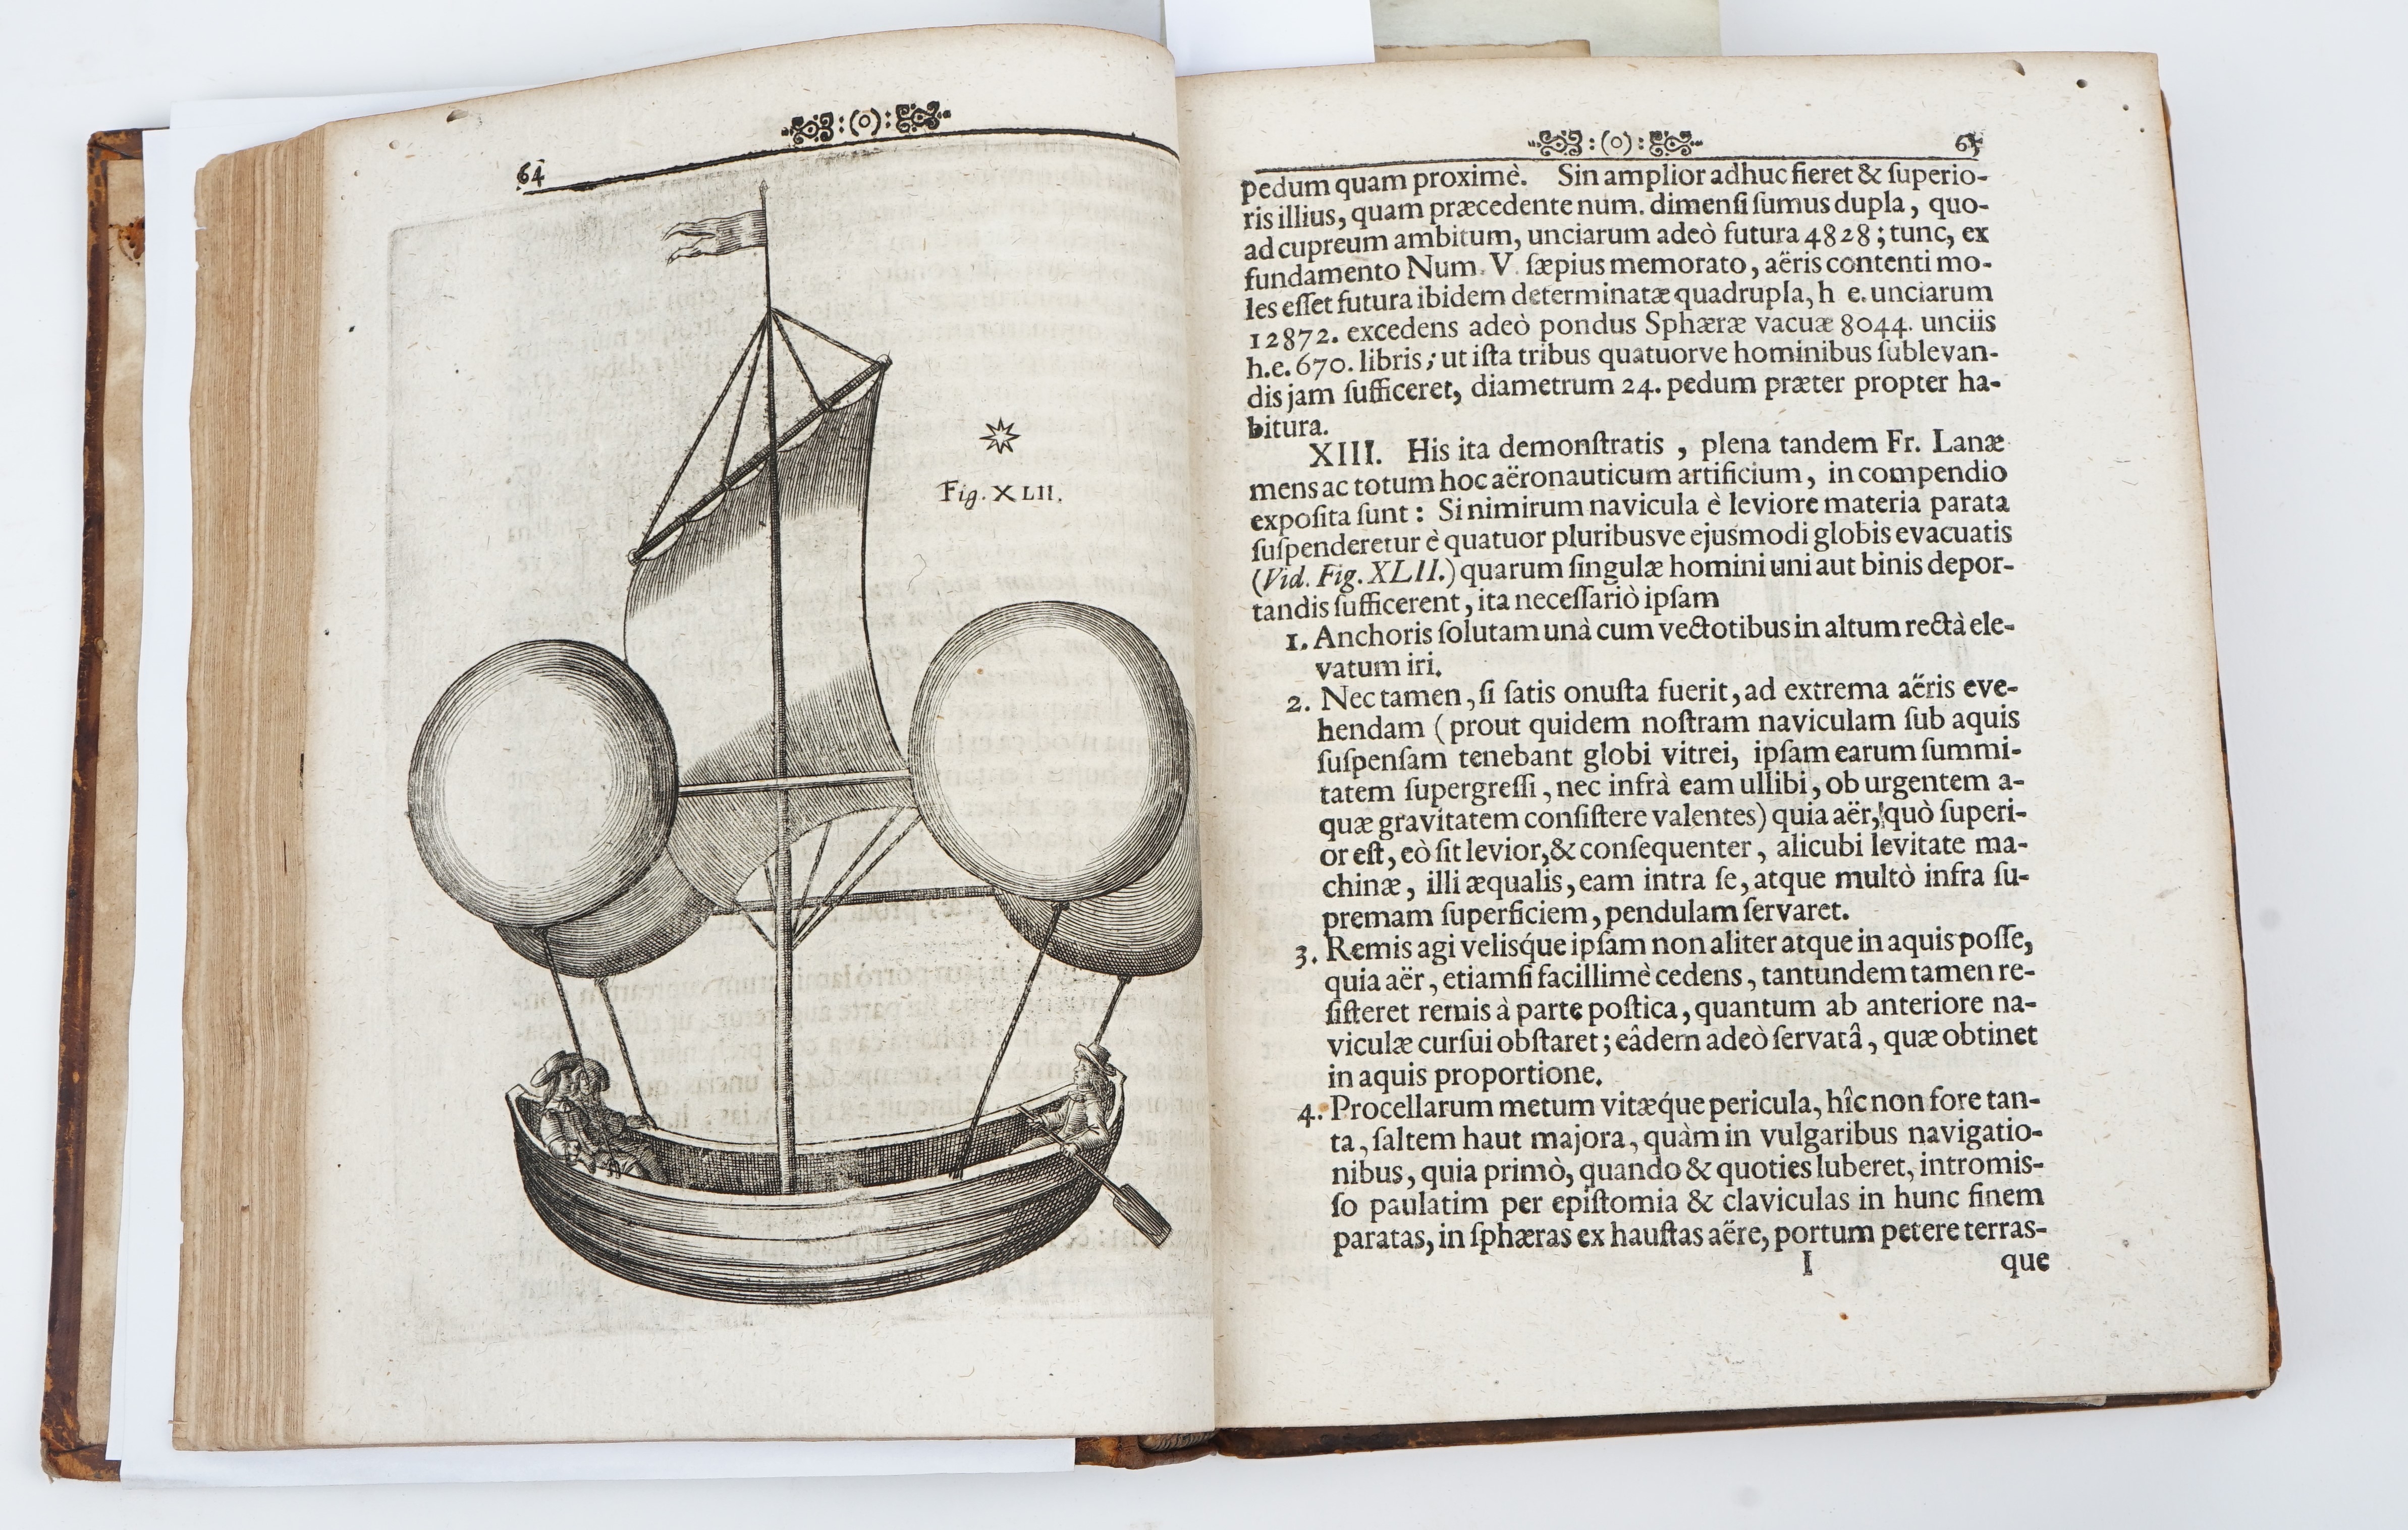 64
Fig. XLII.
:(o):
65
pedum quam proximè. Sin amplior adhuc fieret & ſuperio-
ris illius, quam præcedente num. dimenſi ſumus dupla, quo-
ad cupreum ambitum, unciarum adeò futura 4828; tunc, ex
fundamento Num. V. ſæpius memorato, aëris contenti mo-
les eſſet futura ibidem determinatæ quadrupla, h e. unciarum
12872. excedens adeò pondus Sphæræ vacuæ 8044. unciis
h.e. 670. libris; ut iſta tribus quatuorve hominibus ſublevan-
dis jam ſufficeret, diametrum 24. pedum præter propter ha-
bitura.
XIII. His ita demonſtratis, plena tandem Fr. Lanæ
mens ac totum hoc aëronauticum artificium, in compendio
expoſita ſunt: Si nimirum navicula è leviore materia parata
ſuſpenderetur è quatuor pluribusve ejusmodi globis evacuatis
(Vid. Fig. XLII.) quarum ſingulæ homini uni aut binis depor-
tandis ſufficerent, ita neceſſariò ipſam
1. Anchoris ſolutam unà cum vectotibus in altum rectà ele-
vatum iri.
2. Nec tamen, ſi ſatis onuſta fuerit, ad extrema aëris eve-
hendam (prout quidem noſtram naviculam ſub aquis
ſuſpenſam tenebant globi vitrei, ipſam earum ſummi-
tatem ſupergreſſi, nec infrà eam ullibi, ob urgentem a-
quæ gravitatem conſiſtere valentes) quia aër, quò ſuperi-
or eſt, eò ſit levior, & conſequenter, alicubi levitate ma-
chinæ, illi æqualis, eam intra ſe, atque multò infra ſu-
premam ſuperficiem, pendulam ſervaret.
3. Remis agi velisq́ue ipſam non aliter atque in aquis poſſe,
quia aër, etiamſi facillimè cedens, tantundem tamen re-
ſiſteret remis à parte poſtica, quantum ab anteriore na-
viculæ curſui obſtaret; eâdem adeò ſervatâ, quæ obtinet
in aquis proportione.
4. Procellarum metum vitæq́ue pericula, hîc non fore tan-
ta, ſaltem haut majora, quàm in vulgaribus navigatio-
nibus, quia primò, quando & quoties luberet, intromis-
ſo paulatim per epiſtomia & claviculas in hunc finem
paratas, in ſphæras ex hauſtas aëre, portum petere terras-
I que